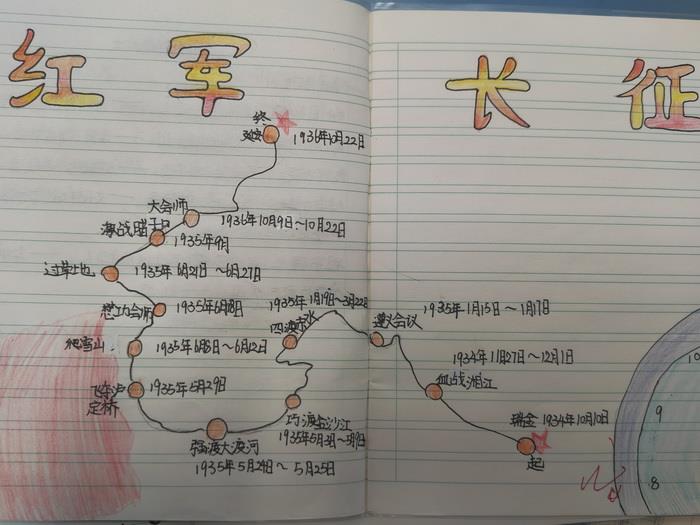 红军 长征
终
延安
1936年10月22日
大会师
1936年10月9日～10月22日
激战腊子口
1935年9月
过草地
1935年6月21日～6月27日
懋功会师
1935年6月8日
爬雪山
1935年6月8日～6月12日
飞夺泸
定桥
1935年5月29日
强渡大渡河
1935年5月24日～5月25日
巧渡金沙江
1935年5月3日～5月9日
四渡赤水
1935年1月19日～3月22日
遵义会议
1935年1月15日～1月17日
血战湘江
1934年11月27日～12月1日
瑞金 1934年10月10日
起
10
9
8